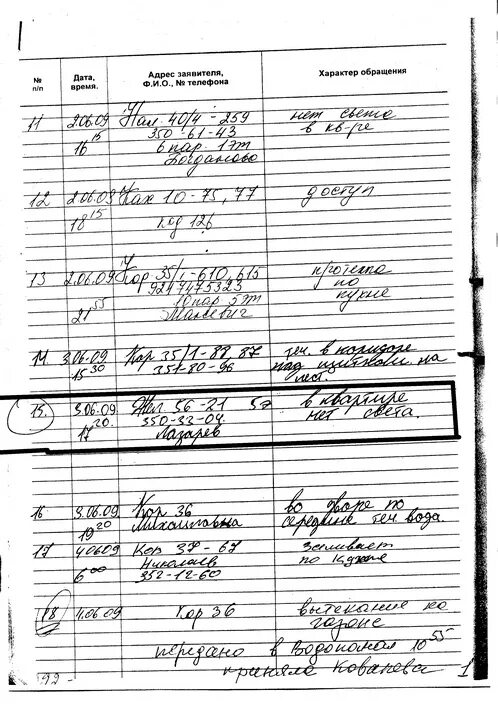 № п/п Дата, время. Адрес заявителя, Ф.И.О., № телефона Характер обращения
11 2.06.09 40/4 - 259 нет света
16 15 350-61-43 в кв-ре
6 пар. 1эт
Богданово
12 2.06.09 10-75, 77 доступ
18 15 код 126
13 2.06.09 Кор 35/1-610, 615 протечка
9247475323 по
21 55 10пар 5эт кухне
Макевич
14 3.06.09 Кор 35/1-88, 87 теч. в коридоре
15 30 351-80-96 над щитком на
лест.
15. 3.06.09 56-21 5э в квартире
17 20. 350-33-04. нет света.
Лазарев
16 3.06.09 Кор 36 во дворе по
19 20 Михайловна середине теч. вода.
17 4.06.09 Кор 37-67 заливает
6 00 Николаев по кухне
352-12-60
18 4.06.09 Кор 36 вытекание на
газоне
передано в Водоканал 10 55
приняла Ковалева 1
92 -